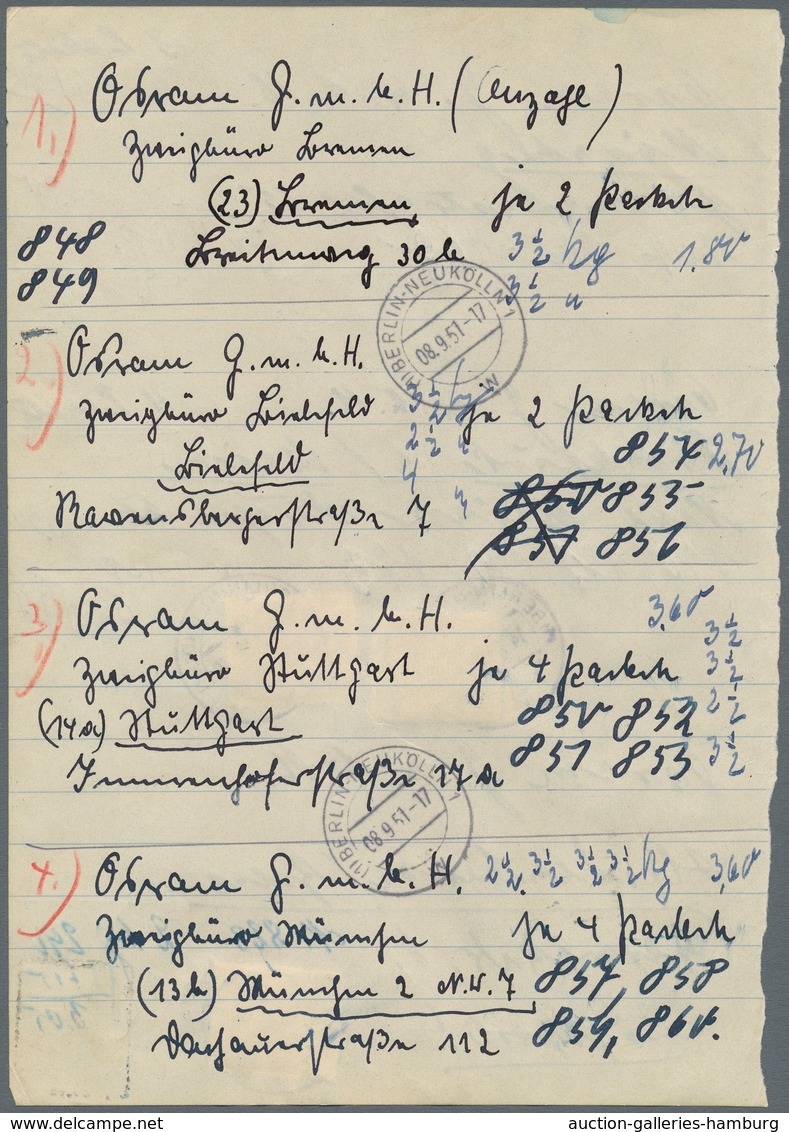 1.) Osram G.m.b.H. (Anzage)
Zweigbüro Bremen
(23) Bremen je 2 Pakete
848 Breitenweg 30 b 3½ kg 1.80
849 3½ "
(1) BERLIN-NEUKÖLLN 1
08.9.51-17
w
2.) Osram G.m.b.H.
Zweigbüro Bielefeld 3½ je 2 Pakete
2½ "
Bielefeld 4 854 2,70
Ravensbergerstraße 7 850 855
851 856
3.) Osram G.m.b.H. 3,60
3½
Zweigbüro Stuttgart je 4 Pakete 3½
(14a) Stuttgart 850 852 2½
Immenhoferstraße 17a 851 853 3½
(1) BERLIN-NEUKÖLLN 1
08.9.51-17
w
4.) Osram G.m.b.H. 2½, 3½ 3½ 3½ kg 3,60
Zweigbüro München je 4 Pakete
(13b) München 2 N.W. 7 857, 858
Dachauerstraße 112 859, 860.
auction-galleries-hamburg